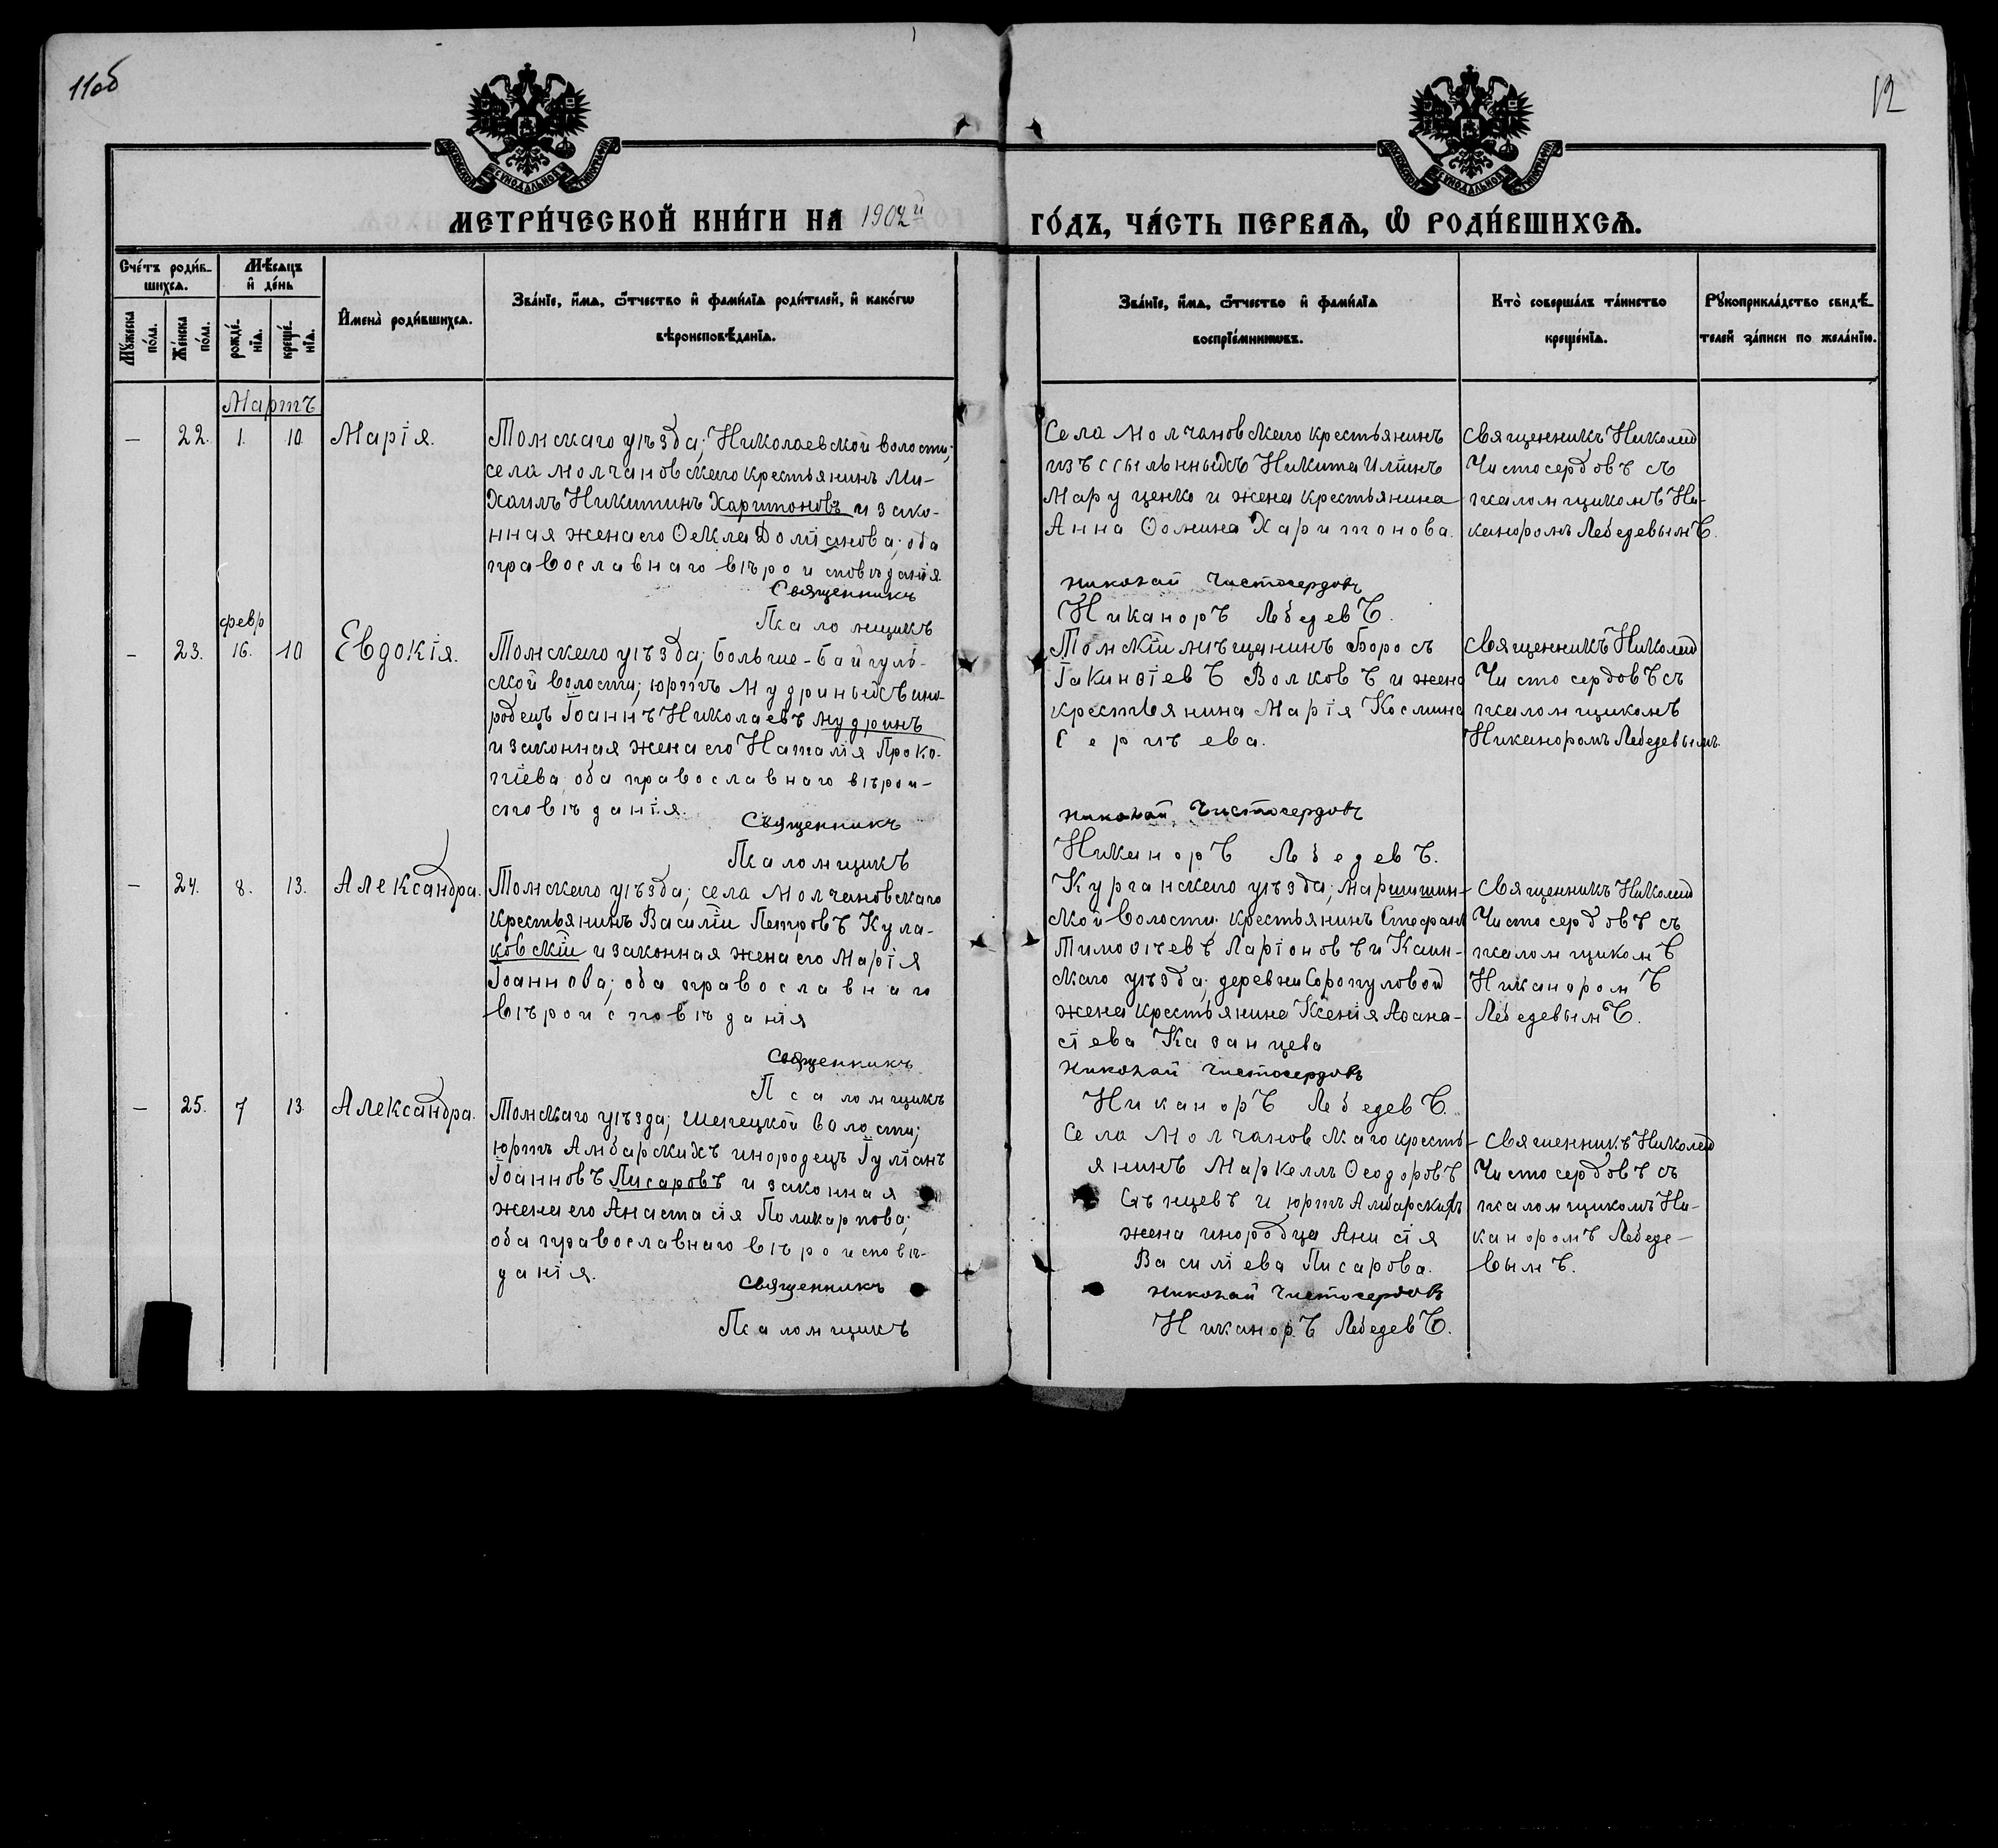 11об
12
МОСКОВСКОЙ СѴНОДАЛЬНОЙ ТИПОГРАФІИ
МОСКОВСКОЙ СѴНОДАЛЬНОЙ ТИПОГРАФІИ
МЕТРИ́ЧЕСКОЙ КНИ́ГИ НА 1902й
ГО́ДЪ, ЧА́СТЬ ПЕРВАѦ, Ѽ РОДИ́ВШИХСѦ.
Сче́тъ роди́в-
шихсѧ.
Мѣсѧцъ
и҆ де́нь
Мꙋ́жеска
по́ла.
Же́нска
по́ла.
рожде́-
нїѧ.
креще́-
нїѧ.
И҆мена̀ роди́вшихсѧ.
Зва́нїе, и҆́мѧ, ѻ҆́тчество и҆ фами́лїѧ роди́телей, и҆ како́гѡ
вѣроисповѣ́данїѧ.
Зва́нїе, и҆́мѧ, ѻ҆́тчество и҆ фами́лїѧ
воспрїе́мникѡвъ.
Кто̀ соверша́лъ та́инство
креще́нїѧ.
Рꙋкоприкла́дство свидѣ́-
телей за́писи по жела́нїю.
Мартъ
— 22. 1. 10. Марія.
Томскаго уѣзда; Николаевской волости;
села Молчановскаго крестьянинъ Ми-
хаилъ Никитинъ Харитоновъ и зако-
нная жена его Ѳекла Доміанова; оба
православнаго вѣроисповѣданія
Священникъ
Псаломщикъ
Села Молчановскаго крестьянинъ
изъ ссыльныхъ Никита Илiинъ
Марущенко и жена крестьянина
Анна Ѳомина Харитонова.
Николай Чистосердовъ
Никаноръ Лебедевъ.
Священникъ Николай
Чистосердовъ съ
псаломщикомъ Ни-
каноромъ Лебедевымъ.
февр
— 23. 16. 10 Евдокія.
Томскаго уѣзда; Больше-Байгуль-
ской волости; юртъ Мудриныхъ ино-
родецъ Іоаннъ Николаевъ Мудринъ
и законная жена его Наталія Проко-
піева оба православнаго вѣрои-
сповѣданія.
Священникъ
Псаломщикъ
Томскій мѣщанинъ Борисъ
Іакинѳіевъ Волковъ и жена
крестьянина Марія Космина
Сергѣева.
Николай Чистосердовъ
Никаноръ Лебедевъ.
Священникъ Николай
Чистосердовъ съ
псаломщикомъ
Никаноромъ Лебедевымъ.
— 24. 8. 13. Александра.
Томскаго уѣзда; села Молчановскаго
крестьянинъ Василій Петровъ Кула-
ковскій и законная жена его Марія
Іоаннова; оба православнаго
вѣроисповѣданія
Священникъ
Псаломщикъ
Курганскаго уѣзда; Маршишин-
ской волости крестьянинъ Стефанъ
Тимоѳѣевъ Ларіоновъ и Каин-
скаго уѣзда; деревни Соропуловой
жена крестьянина Ксенія Аѳана-
сіева Казанцева
Николай Чистосердовъ
Никаноръ Лебедевъ.
Священникъ Николай
Чистосердовъ съ
псаломщикомъ
Никаноромъ
Лебедевымъ.
— 25. 7 13. Александра.
Томскаго уѣзда; Шепецкой волости;
юртъ Амбарскихъ инородецъ Іуліанъ
Іоанновъ Писаровъ и законная
жена его Анастасія Поликарпова;
оба православнаго вѣроисповѣ-
данія.
Священникъ
Псаломщикъ
Села Молчановскаго кресть-
янинъ Маркеллъ Ѳеодоровъ
Сѣнцевъ и юртъ Амбарскихъ
жена инородца Анисія
Василіева Писарова.
Николай Чистосердовъ
Никаноръ Лебедевъ.
Священникъ Николай
Чистосердовъ съ
псаломщикомъ Ни-
каноромъ Лебеде-
вымъ.